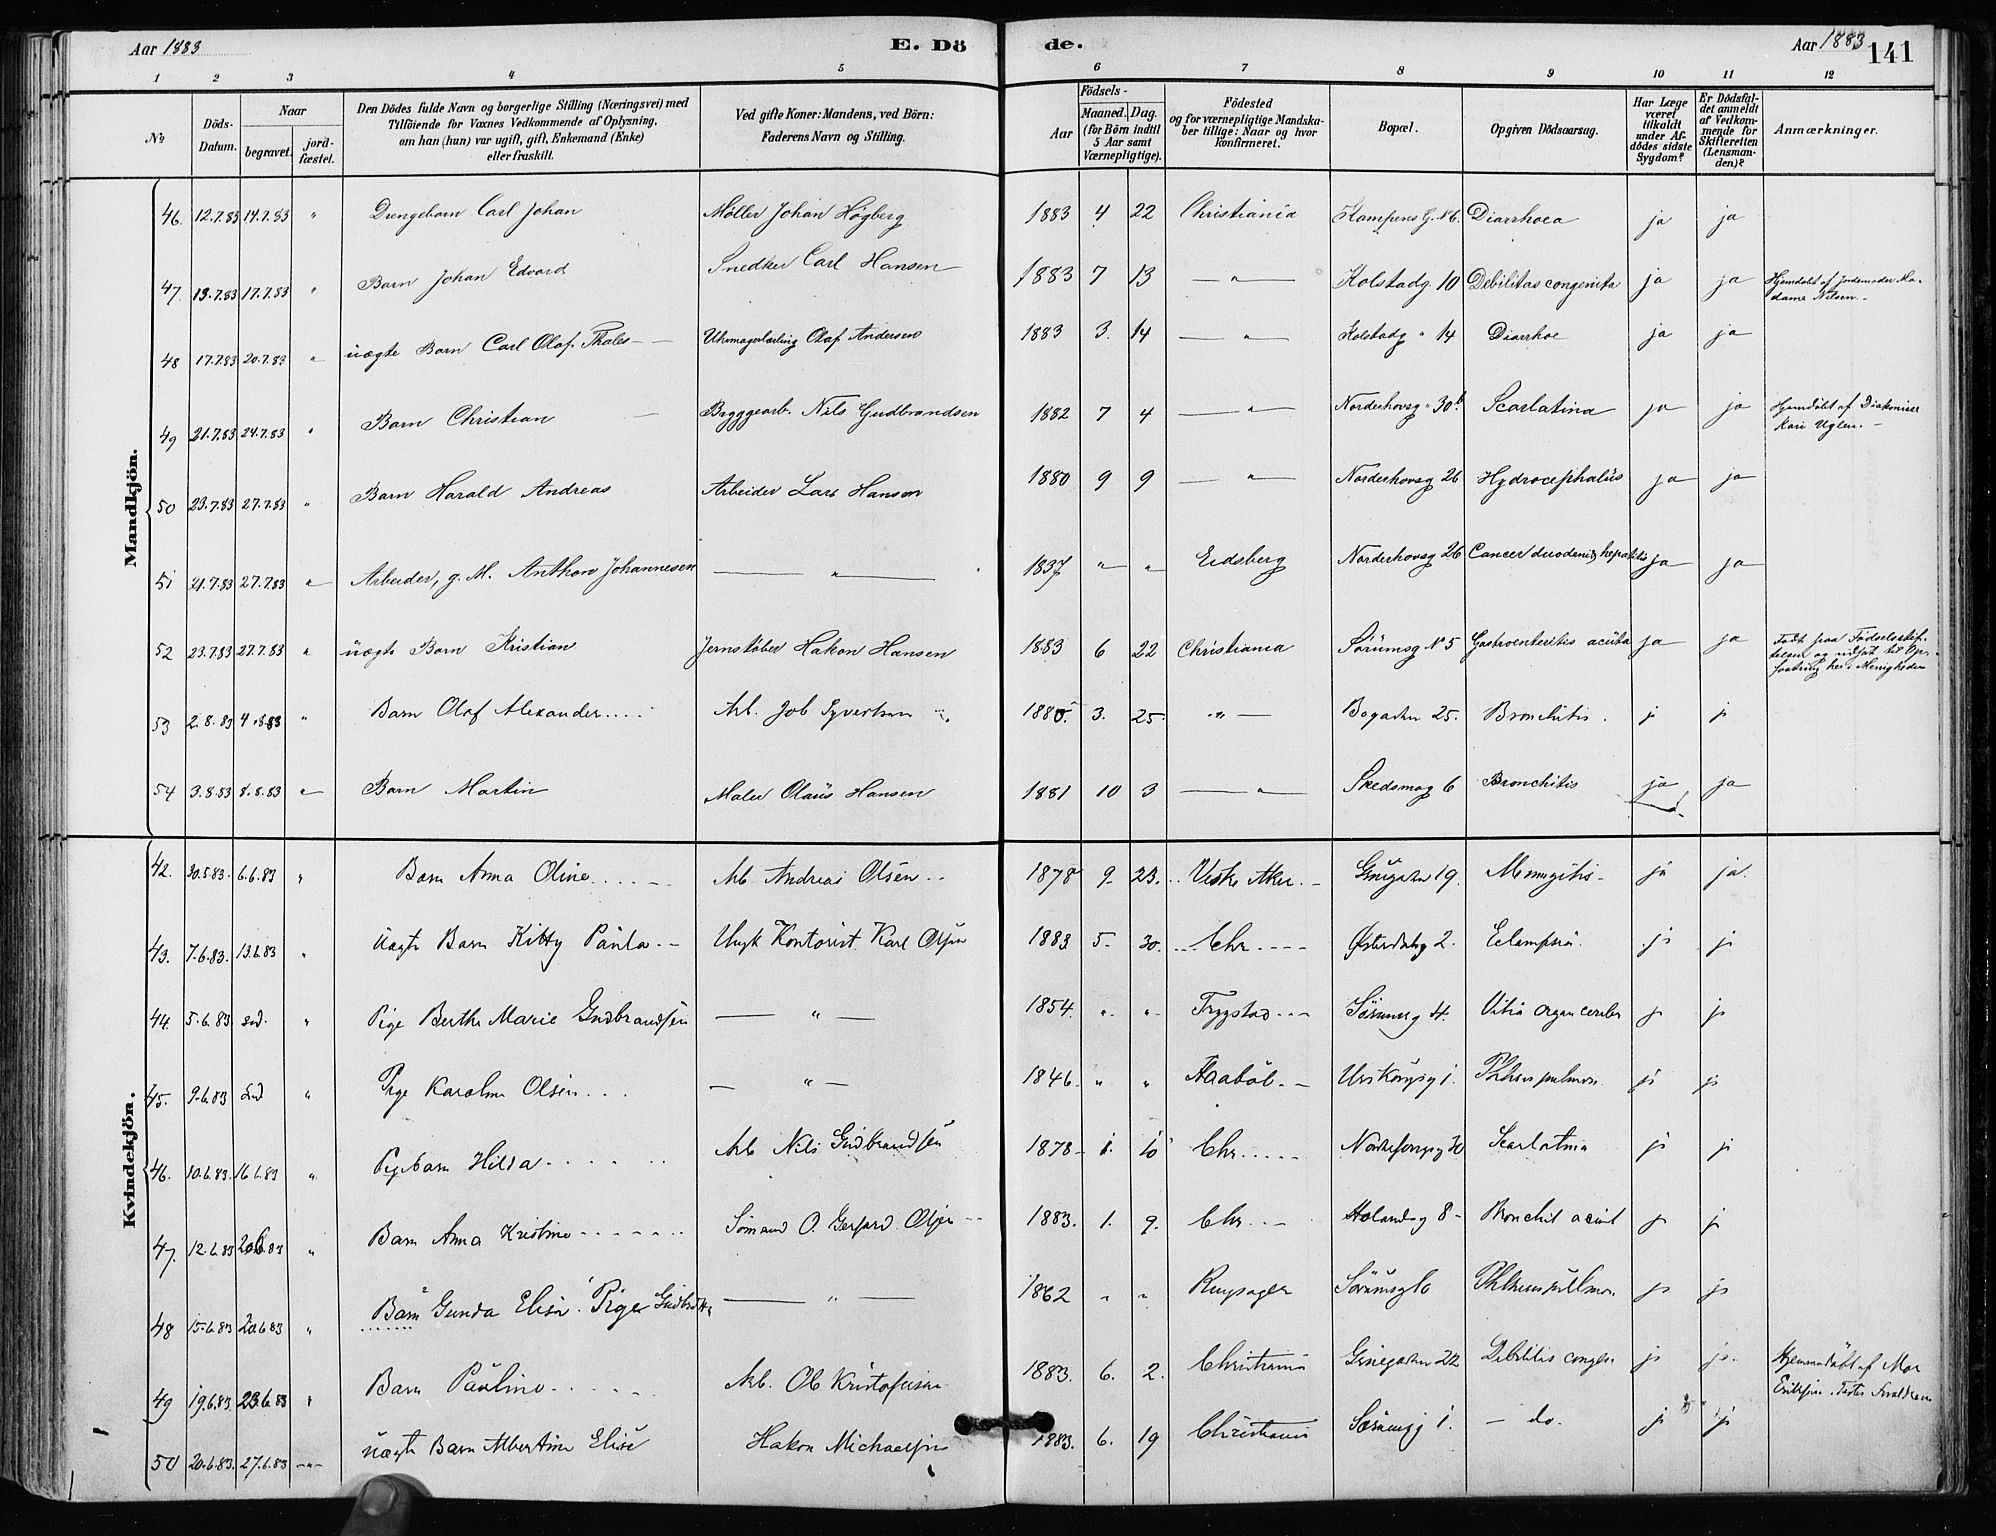 Aar 1883 E. Dö de. Aar 1883 141
1 2 3 4 5 6 7 8 9 10 11 12
No. Döds-Datum. Naar begravet. jord-fæstet. Den Dödes fulde Navn og borgerlige Stilling (Næringsvei) med Tilföiende for Voxnes Vedkommende af Oplysning, om han (hun) var ugift, gift, Enkemand (Enke) eller fraskilt. Ved gifte Koner: Mandens, ved Börn: Faderens Navn og Stilling. Födsels- Aar Maaned. Dag. (for Börn indtil 5 Aar samt Værnepligtige). Födested og for værnepligtige Mandskaber tillige: Naar og hvor konfirmeret. Bopæl. Opgiven Dödsaarsag. Har Læge været tilkaldt under Afdödes sidste Sygdom? Er Dödsfaldet anmeldt af Vedkommende for Skifteretten (Lensmanden)? Anmærkninger.
Mandkjön.
46. 12.7.83 14.7.83 " Drengebarn Carl Johan Møller Johan Högberg 1883 4 22 Christiania Kampens G. No 6. Diarrhoea ja ja
47. 13.7.83 17.7.83 " Barn Johan Edvard Snedker Carl Hansen 1883 7 13 — " — Kolstadg. 10 Debilitas congenita ja ja Hjemdøbt af Jordemoder Madame Nilsen.-
48 17.7.83 20.7.83 " uægte Barn Carl Olaf Thales — Uhrmagerlærling Olaf Andersen 1883 3. 14 — " — Kolstadg " 14 Diarrhoe ja ja
49 21.7.83 24.7.83 " Barn Christian — Byggearb. Nils Gudbrandsen 1882 7 4 — " — Norderhovsg. 30b. Scarlatina ja ja Hjemdøbt af Diakonisse Kari Uglen.-
50 23.7.83 27.7.83 " Barn Harald Andreas Arbeider Lars Hansen 1880 9 9 — " — Norderhovsg 26 Hydrocephalus ja ja
51 21.7.83 27.7.83 " Arbeider, g. M. Anthon Johannesen — " — 1837 " " Eidsberg Norderhovsg 26 Cancer duodeni & hepatitis ja ja
52 23.7.83 27.7.83 " uægte Barn Kristian Jernstøber Hakon Hansen 1883 6 22 Christiania Sørumsg No 5 Gastroenteritis acuta ja ja Født paa Fødselsstiftelsen og udsat til Opfostring her i Menigheden
53 2.8.83 4.8.83 " Barn Olaf Alexander.... Arb. Job Syvertsen 1880. 3. 25. " — Bogaden 25. Bronchitis. j j
54 3.8.83 8.8.83 " Barn Martin Maler Olaus Hansen 1881 10 3 — " — Skedsmog 6 Bronchitis ja ja
Kvindekjön.
42. 30.5.83. 6.6.83 " Barn Anna Oline..... Arb. Andreas Olsen.. 1878 9. 23. Vestre Aker.- 19. Meningitis- ja ja.
43. 7.6.83. 13.6.83 " uægte Barn Kitty Paula.- Ungk Kontorist Karl Olsen 1883 5. 30. Chr.... Østerdalsg 2. Eclampsia. j j
44. 5.6.83 " Pige Berthe Marie Gudbrandsen — " — 1854. " " Trygstad... Sørumsg 4. Vitia organ cerebr j j
45. 9.6.83 " Pige Karoline Olsen... — " — 1846. " " Urskougsg 1. Phthisis pulmon. j j
46. 10.6.83. 16.6.83 " Pigebarn Hilda...... Arb Nils Gudbrandsen 1878. 1. 10 Chr..... 30 Scarlatina j j
47. 12.6.83 20.6.83 " Barn Anna Kristine....... Sømand O. Gerhard Olsen 1883. 1. 9. Chr... 8- Bronchit acut j j
48 15.6.83 20.6.83 " Barn Gunda Elise. Pige — " — 1862 " " Sørumsg 6 Phthisis pulmon j j
49 19.6.83. 23.6.83 " Barn Pauline...... Arb. Ole Kristofersen 1883. 6. 2. Christiania Grüegaden 22 Debilitas congen. j j. Hjemmedøbt af
50 20.6.83. 27.6.83 -"- uægte Barn Albertine Elise Hakon Michaelsen 1883. 6. 19 Christiania Sørumsg 1. — do. j j